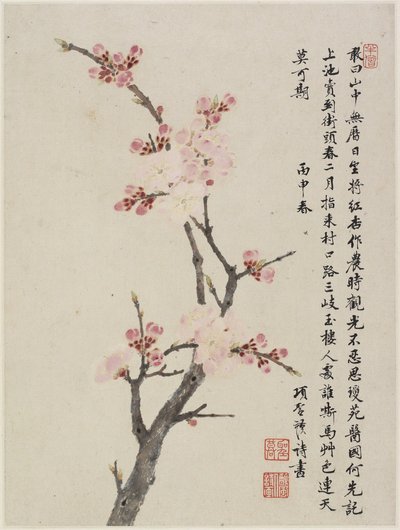 敢曰山中無曆日生將紅杏作農時觀光不惡思瓊苑醫國何先記
上池賣到街頭春二月指來村口路三岐玉樓人處誰嘶馬草色連天
莫可期
丙申春
項聖謨詩書